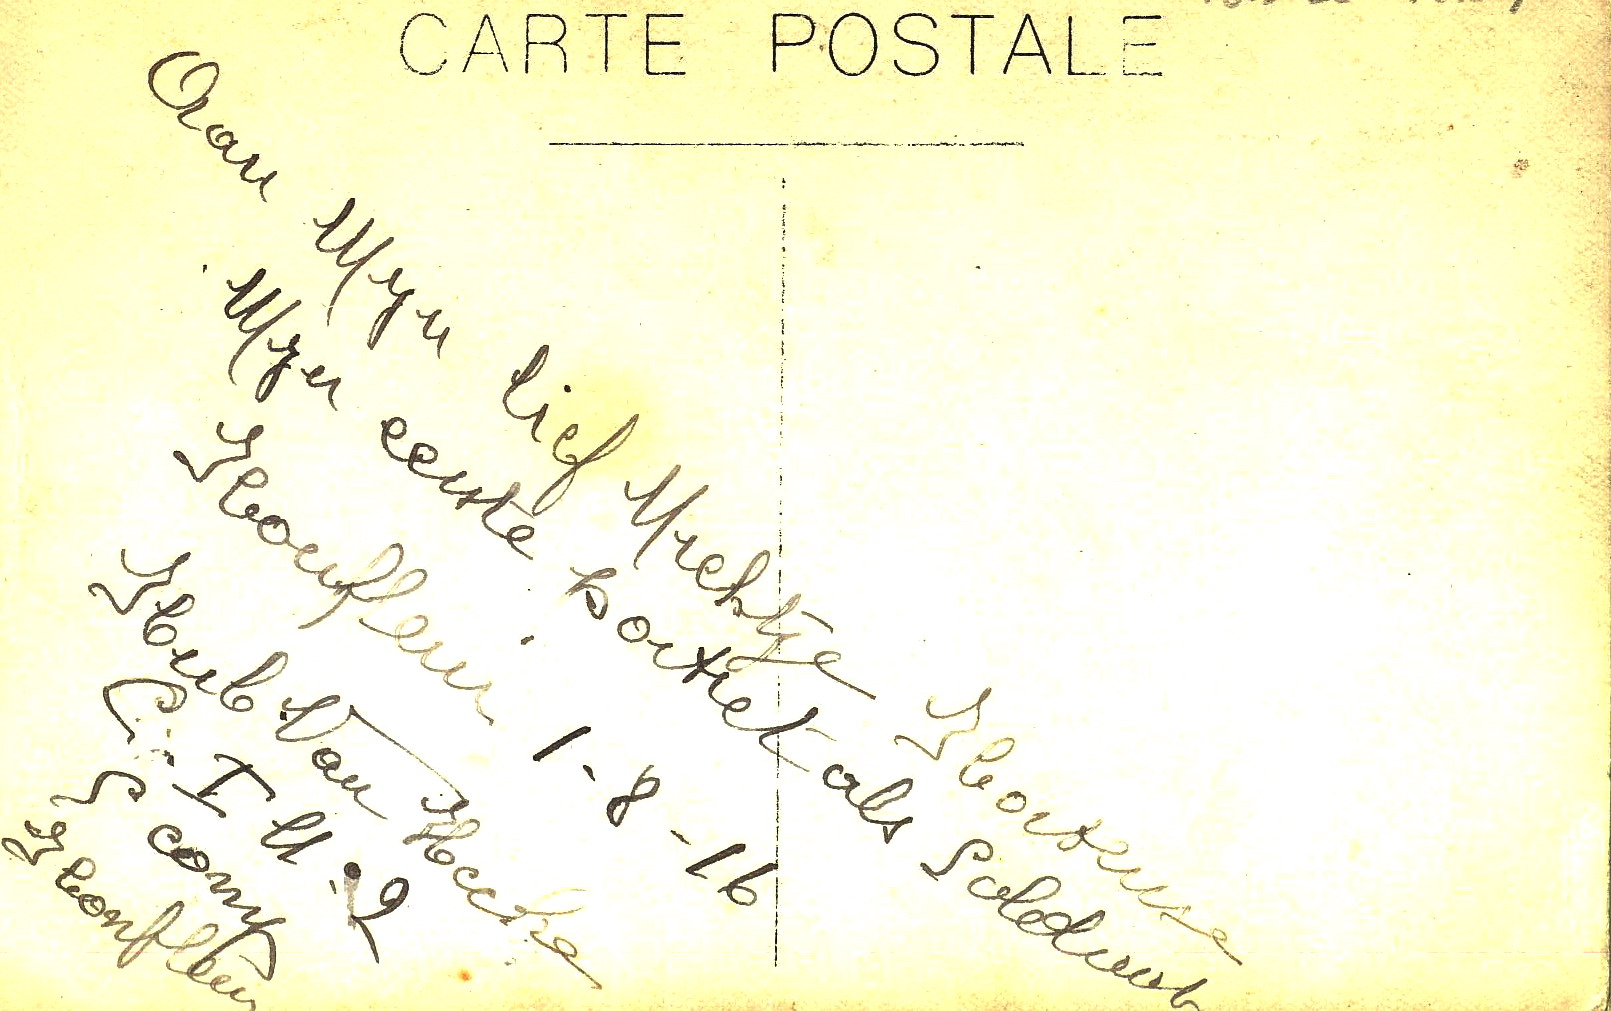 CARTE POSTALE
Aan Myn lief Nichtje Hortense
Myn eerste Portret als Soldaat
Honfleur 1-8-16
Hub Van Hecke
C. I. M. 2
5 comp
Honfleur